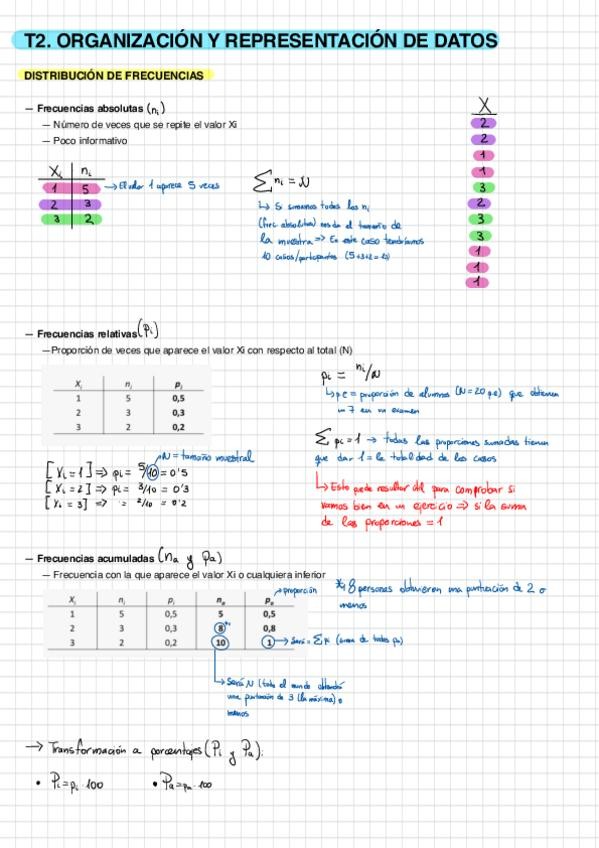 T2. ORGANIZACIÓN Y REPRESENTACIÓN DE DATOS
DISTRIBUCIÓN DE FRECUENCIAS
— Frecuencias absolutas (ni)
— Número de veces que se repite el valor Xi
— Poco informativo
Xi ni
1 5 → El valor 1 aparece 5 veces
2 3
3 2
∑ ni = N
↳ Si sumamos todas las ni
(frec. absolutas) nos da el tamaño de
la muestra => En este caso tendríamos
10 casos/participantes (5+3+2=10)
X
2
2
1
1
3
2
3
3
1
1
1
— Frecuencias relativas (pi)
—Proporción de veces que aparece el valor Xi con respecto al total (N)
Xi ni pi
1 5 0,5
2 3 0,3
3 2 0,2
N = tamaño muestral
[Xi = 1] => pi = 5/10 = 0'5
[Xi = 2] => pi = 3/10 = 0'3
[Xi = 3] => = 2/10 = 0'2
pi = ni/N
↳ = proporción de alumnos (N=20 pe) que obtienen
un 7 en un examen
∑ pi = 1 → todas las proporciones sumadas tienen
que dar 1 = la totalidad de los casos
↳ Esto puede resultar útil para comprobar si
vamos bien en un ejercicio => si la suma
de las proporciones = 1
— Frecuencias acumuladas (na y pa)
— Frecuencia con la que aparece el valor Xi o cualquiera inferior
→ proporción
Xi ni pi na pa
1 5 0,5 5 0,5
2 3 0,3 8 0,8
3 2 0,2 10 1 → Será = ∑ pi de todas
* 8 personas obtuvieron una puntuación de 2 o
menos
↳ Será N (todo el mundo
una puntuación de 3 (la máxima) o
menos
→ Transformación a porcentajes (Pi y Pa):
• Pi = pi · 100
• Pa = pa · 100